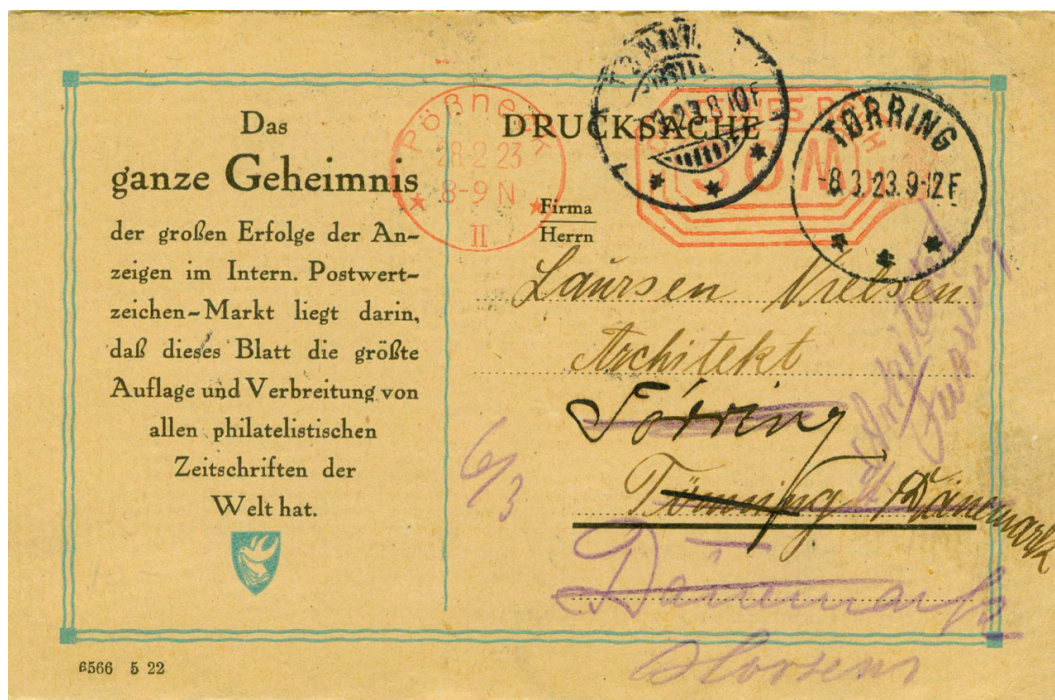 Das
ganze Geheimnis
der großen Erfolge der An-
zeigen im Intern. Postwert-
zeichen-Markt liegt darin,
daß dieses Blatt die größte
Auflage und Verbreitung von
allen philatelistischen
Zeitschriften der
Welt hat.
6566 5 22
Pößneck
28.2.23
8-9 N
II
DRUCKSACHE
23.8-10F
TØRRING
-8.3.23.9-12F
Firma
Herrn
Laursen Nielsen
Architekt
Törring
Tönning Dänemark
Dänemark
Horsens
6/3